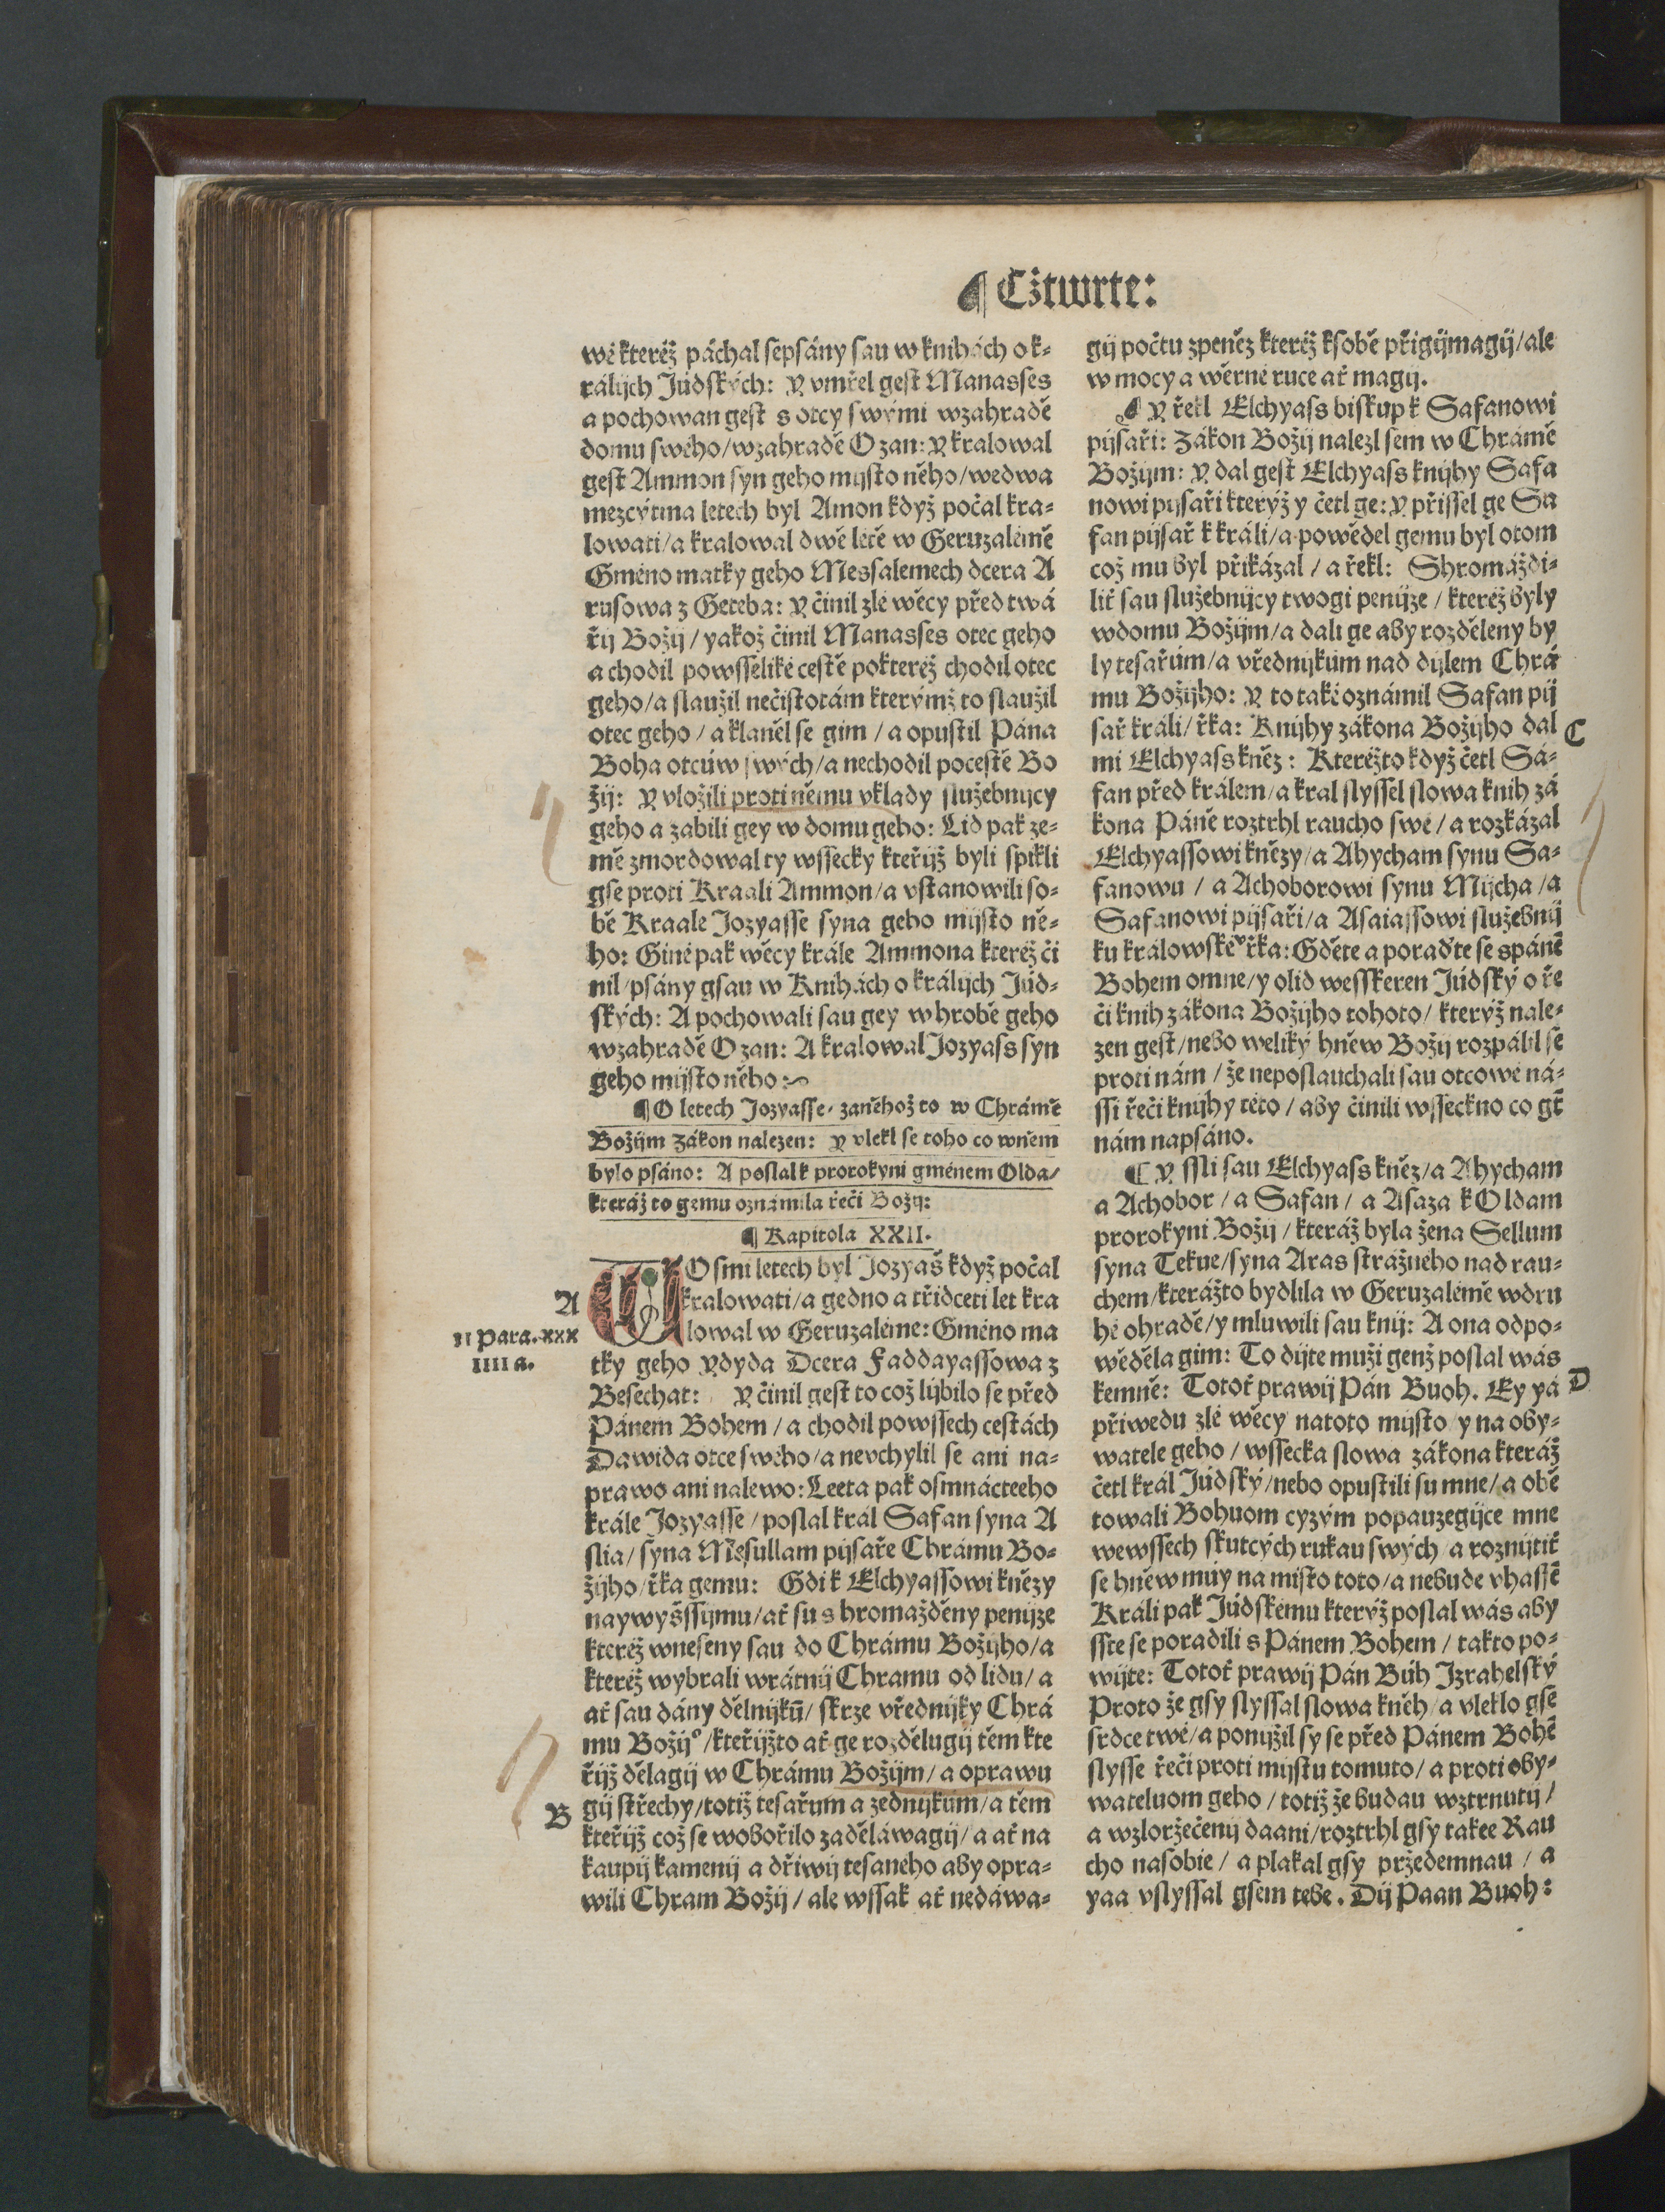 ¶ Cžtwrte:
wé kteréž páchal sepsány sau w knihách o k-
rálijch Júdských: Y vmřel gest Manasses
a pochowan gest s otcy swými wzahradě
domu swého/wzahradě Ozan: Y kralowal
gest Ammon syn geho mijsto něho/wedwa
mezcýtma letech byl Amon když počal kra-
lowati/a kralowal dwě létě w Geruzalémě
Gméno matky geho Messalemech dcera A
rusowa z Geteba: Y činil zlé wěcy před twá
řij Božij/yakož činil Manasses otec geho
a chodil powsselike cestě pokteréž chodil otec
geho/a slaužil nečistotám kterýmž to slaužil
otec geho/a klaněl se gim/a opustil Pána
Boha otcúw swých/a nechodil pocestě Bo
žij: Y vložili proti němu vklady služebnijcy
geho a zabili gey w domu geho: Lid pak ze-
mě zmordowal ty wssecky kteřijž byli spikli
gse proti Kraali Ammon/a vstanowili so-
bě Kraale Jozyasse syna geho mijsto ně-
ho: Giné pak wěcy krále Ammona kteréž či
nil/psány gsau w Knihách o králijch Júd-
ských: A pochowali sau gey w hrobě geho
wzahradě Ozan: A kralowal Jozyass syn
geho mijsto něho:
¶ O letech Jozyasse/ zaněhož to w Chrámě
Božijm Zákon nalezen: Y vlekl se toho co wněm
bylo psáno: A poslal k prorokyni gménem Olda/
kteráž to gemu oznámila řeči Božij:
¶ Kapitola XXII.
A
II Para.xxx
IIII a.
WOsmi letech byl Jozyaš když počal
kralowati/a gedno a třidceti let kra
lowal w Geruzaléme: Gméno ma
tky geho Ydyda Dcera Faddayassowa z
Besechat: Y činil gest to což lijbilo se před
Pánem Bohem/a chodil powssech cestách
Dawida otce swého/a nevchylil se ani na-
prawo ani nalewo: Leeta pak osmnácteeho
krále Jozyasse/poslal král Safan syna A
slia/syna Mesullam pijsaře Chrámu Bo-
žijho/řka gemu: Gdi k Elchyassowi knězy
naywyšssijmu/ať su s hromažděny penijze
kteréž wneseny sau do Chrámu Božijho/a
kteréž wybrali wrátnij Chramu od lidu/a
ať sau dány dělnijkū/skrze vřednijky Chrá
mu Božijº/kteřijžto ať ge rozdělugij těm kte
řijž dělagij w Chrámu Božijm/a oprawu
B
gij střechy/totiž tesařum a zednijkúm/a těm
kteřijž což se wobořilo zaděláwagij/a ať na
kaupij kamenij a dřiwij tesaneho aby opra-
wili Chram Božij/ale wssak ať nedáwa-
gij počtu zpeněz kteréž ksobě přigijmagij/ale
w mocy a wěrné ruce ať magij.
¶ Y řekl Elchyass biskup k Safanowi
pijsaři: Zákon Božij nalezl sem w Chrámě
Božijm: Y dal gest Elchyass knijhy Safa
nowi pijsaři kterýž y četl ge: Y přissel ge Sa
fan pijsař k králi/a powěděl gemu byl otom
což mu byl přikázal/a řekl: Shromáždi-
liť sau služebnijcy twogi penijze/kteréž byly
wdomu Božijm/a dali ge aby rozděleny by
ly tesařúm/a vřednijkúm nad dijlem Chrá
mu Božijho: Y to také oznámil Safan pij
sař králi/řka: Knijhy zákona Božijho dal
C
mi Elchyass kněz: Kteréžto když četl Sa-
fan před králem/a kral slyssel slowa knih zá
kona Páně roztrhl raucho swé/a rozkázal
Elchyassowi knězy/a Ahycham synu Sa-
fanowu/a Achoborowi synu Mijcha/a
Safanowi pijsaři/a Asaiassowi služebnij
ku králowské° řka: Gděte a poraďte se spánē
Bohem omne/y olid wesskeren Júdský o ře
či knih zákona Božijho tohoto/kterýž nale-
zen gest/nebo weliký hněw Božij rozpálil se
proti nám/že neposlauchali sau otcowé ná-
ssi řeči knijhy této/aby činili wsseckno co gt̄
nám napsáno.
¶ Y ssli sau Elchyass kněz/a Ahycham
a Achobor/a Safan/a Asaza k Oldam
prorokyni Božij/kteráž byla žena Sellum
syna Tekue/syna Aras strážného nad rau-
chem/kterážto bydlila w Geruzalémě wdru
hé ohradě/y mluwili sau knij: A ona odpo-
wěděla gim: To dijte muži genž poslal wás
kemně: Totoť prawij Pán Buoh. Ey yá
D
přiwedu zlé wěcy natoto mijsto y na oby-
watele geho/wssecka slowa zákona kteráž
četl král Júdský/nebo opustili su mne/a obě
towali Bohuom cyzým popauzegijce mne
wewssech skutcých rukau swých/a roznijtiť
se hněw muy na misto toto/a nebude vhassē
Králi pak Júdskému kterýž poslal wás aby
sste se poradili s Pánem Bohem/takto po-
wijte: Totoť prawij Pán Búh Izrahelský
Proto že gsy slyssal slowa kněh/a vleklo gsē
srdce twé/a ponijžil sy se před Pánem Bohē
slysse řeči proti mijstu tomuto/a proti oby-
wateluom geho/totiž že budau wztrnutij/
a wzloržečenij daani/roztrhl gsy takee Rau
cho nasobie/a plakal gsy pržedemnau/a
yaa vslyssal gsem tebe. Dij Paan Buoh: